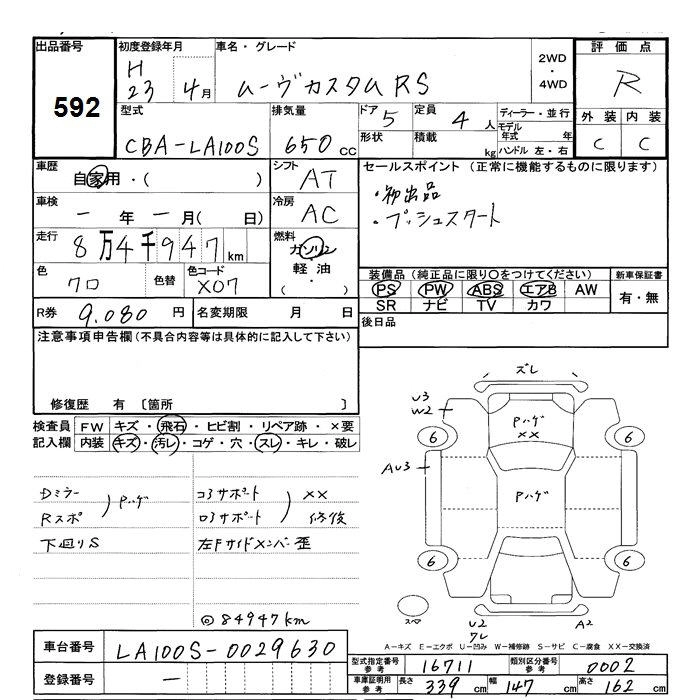 出品番号 初度登録年月 車名・グレード 2WD・4WD 評価点
592 H23 4月 ムーヴカスタムRS R
型式 排気量 ドア 定員 ディーラー・並行 外装 内装
CBA-LA100S 650cc 5 4人 モデル年式 年 C C
形状 積載 kg ハンドル 左・右
車歴 自家用・( ) シフト AT セールスポイント (正常に機能するものに限ります)
車検 ー年ー月(日) 冷房 AC ・初出品
・プッシュスタート
走行 8万4千947km 燃料 ガソリン・軽油・( )
色 クロ 色替 色コード X07
装備品(純正品に限り○をつけてください) 新車保証書
PS PW ABS エアB AW 有・無
SR ナビ TV カワ
R券 9.080円 名変期限 月 日 後日品
注意事項申告欄(不具合内容等は具体的に記入して下さい)
修復歴 有 〔箇所 〕
検査員記入欄 FW キズ・飛石・ヒビ割・リペア跡・×要
内装 キズ・汚レ・コゲ・穴・スレ・キレ・破レ
Dミラー
Rスポ ) Pハゲ
下廻りS
コアサポート
ロアサポート ) ××修後
左Fサイドメンバー歪
◎84947km
ズレ
U3
W2
Pハゲ
××
6 6
AU3
Pハゲ
6 6
スマ
U2 A2
ワレ
A-キズ E-エクボ U-凹み W-補修跡 S-サビ C-腐食 XX-交換済
車台番号 LA100S-0029630
登録番号 ー
型式指定番号参考 16711 類別区分番号参考 0002
車庫証明用参考 長さ 339cm 幅 147cm 高さ 162cm